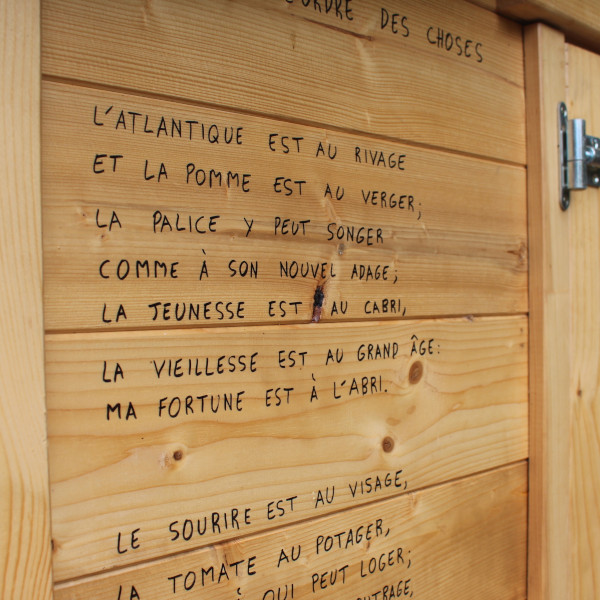 DES CHOSES
L'ATLANTIQUE EST AU RIVAGE
ET LA POMME EST AU VERGER;
LA PALICE Y PEUT SONGER
COMME À SON NOUVEL ADAGE;
LA JEUNESSE EST AU CABRI,
LA VIEILLESSE EST AU GRAND ÂGE:
MA FORTUNE EST À L'ABRI.
LE SOURIRE EST AU VISAGE,
LA TOMATE AU POTAGER,
QUI PEUT LOGER;